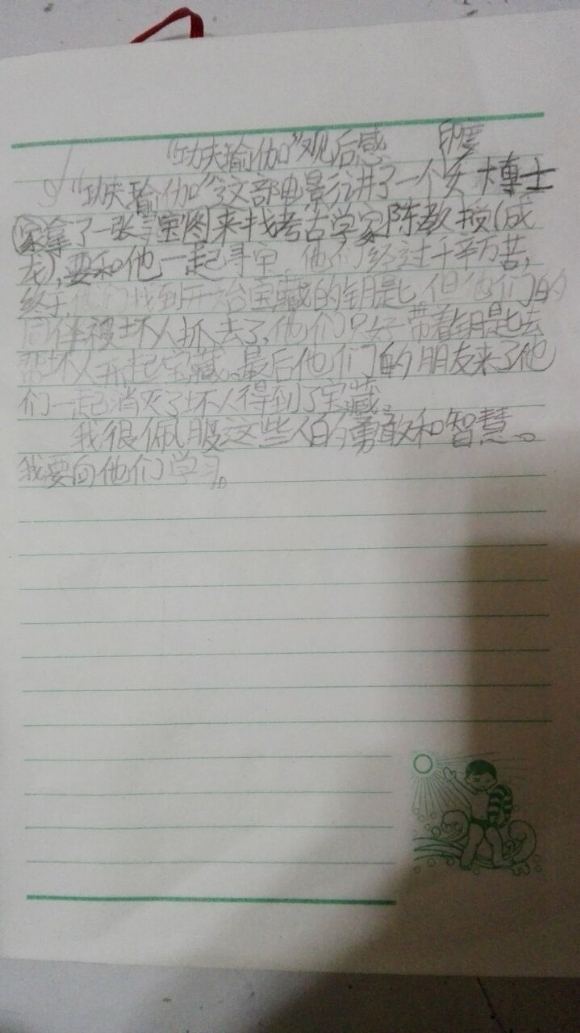 “功夫瑜伽”观后感
“功夫瑜伽”这部电影讲了一个女博士
家拿了一张宝图来找考古学家陈教授(成
龙),要和他一起寻宝。他们经过千辛万苦,
终于他们找到开启宝藏的钥匙,但他们的
同伴被坏人抓去了,他们只好带着钥匙去
帮坏人开起宝藏。最后他们的朋友来了他
们一起消灭了坏人得到了宝藏。
我很佩服这些人的勇敢和智慧。
我要向他们学习。